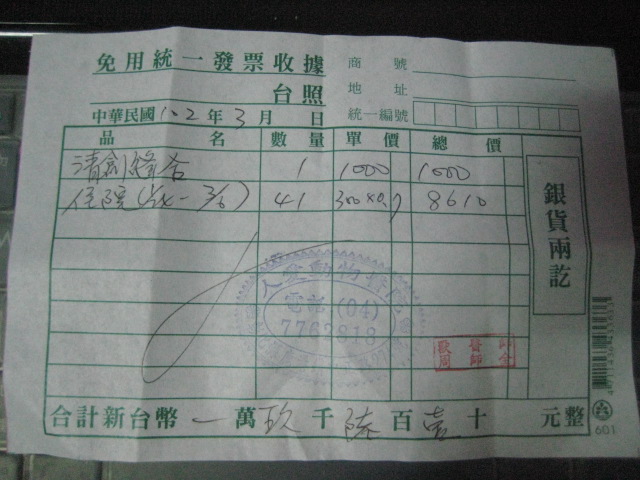 免用統一發票收據
台照
商號
地址
統一編號
中華民國102年3月 日
品名 數量 單價 總價
清創縫合 1 1000 1000
住院 41 300×0.7 8610
銀貨兩訖
人愛動物醫院
電話(04)
7762818
合計新台幣 一萬玖千陸百壹十 元整
601